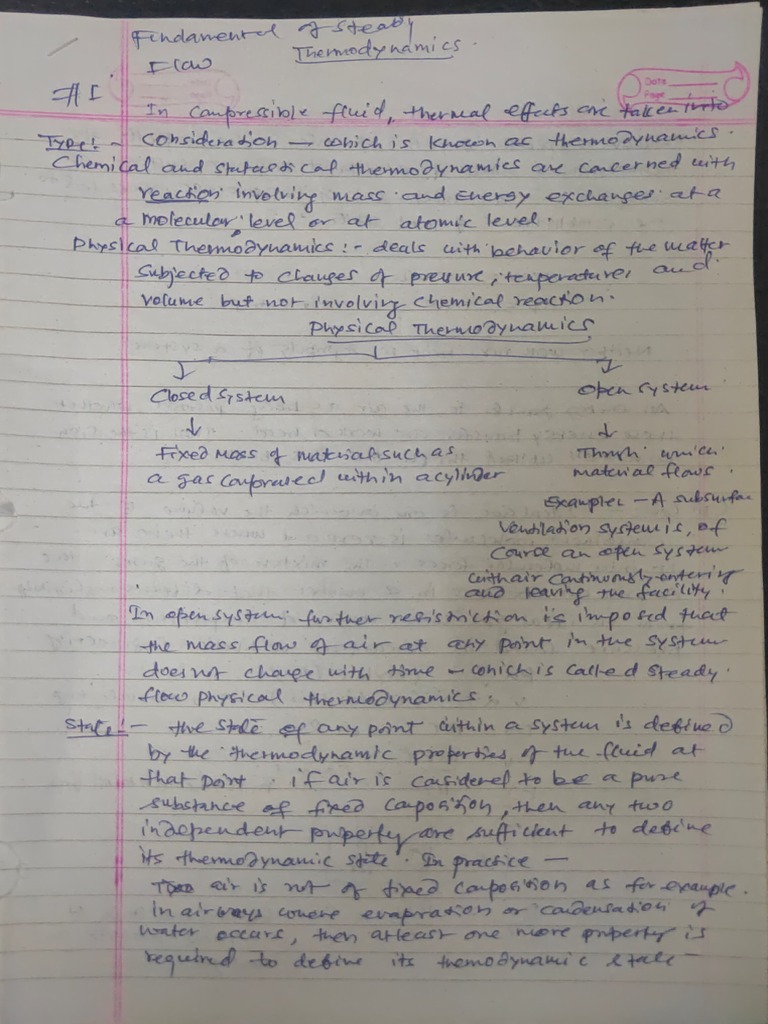 Fundamental of Steady
Flow Thermodynamics.
# I
Date
Page
In compressible fluid, thermal effects are taken into
Type:- consideration — which is known as thermodynamics.
Chemical and statastical thermodynamics are concerned with
reaction involving mass and Energy exchanges at a
a molecular level or at atomic level.
Physical Thermodynamics:- deals with behavior of the matter
subjected to changes of pressure, temperature, and
volume but not involving Chemical reaction.
Physical Thermodynamics
Closed System
Open System
Fixed Mass of material such as
a gas comprased within a cylinder
Through which
material flows.
Example - A subsurfac
Ventilation system is, of
Cource an open system
with air continuously entering
and leaving the facility.
In open system further resistriction is imposed that
the mass flow of air at any point in the system
does not change with time - which is called steady
flow physical thermodynamics.
State:- the state of any point within a system is defined
by the thermodynamic properties of the fluid at
that point. if air is considered to be a pure
substance of fixed composition, then any two
independent property are sufficient to define
its thermodynamic state. In practice —
air is not of fixed composition as for example.
In airways where evapration or condensation of
water occurs, then atleast one more property is
required to define its themodynamic state -